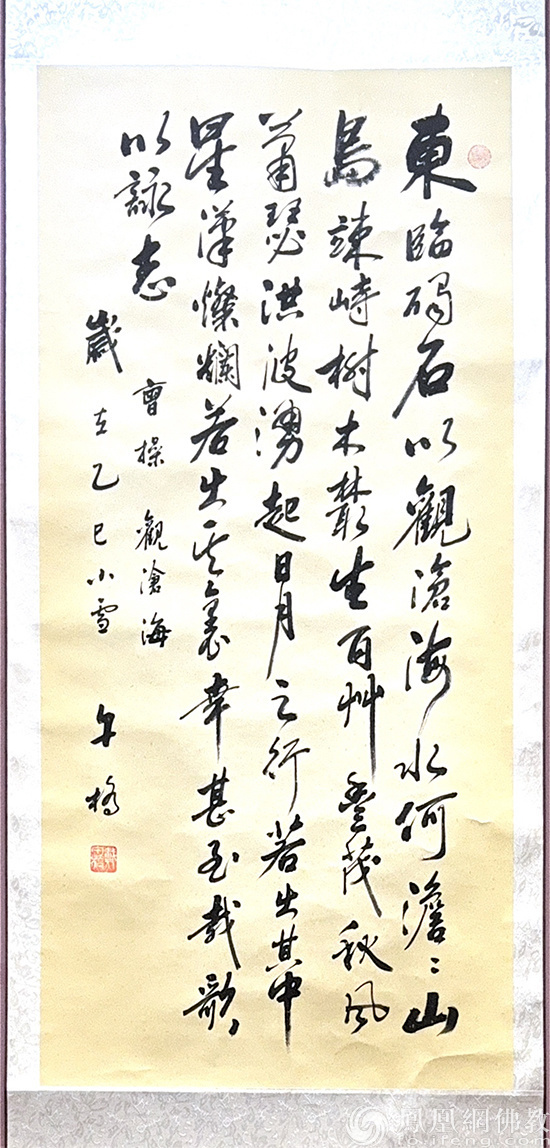 東臨碣石以觀滄海水何澹〻山
島竦峙樹木叢生百艸豐茂秋風
蕭瑟洪波湧起日月之行若出其中
星漢燦爛若出其裏幸甚至哉歌
以詠志
曹操 觀滄海
歲在乙巳小雪 午橋
鳳凰網佛教